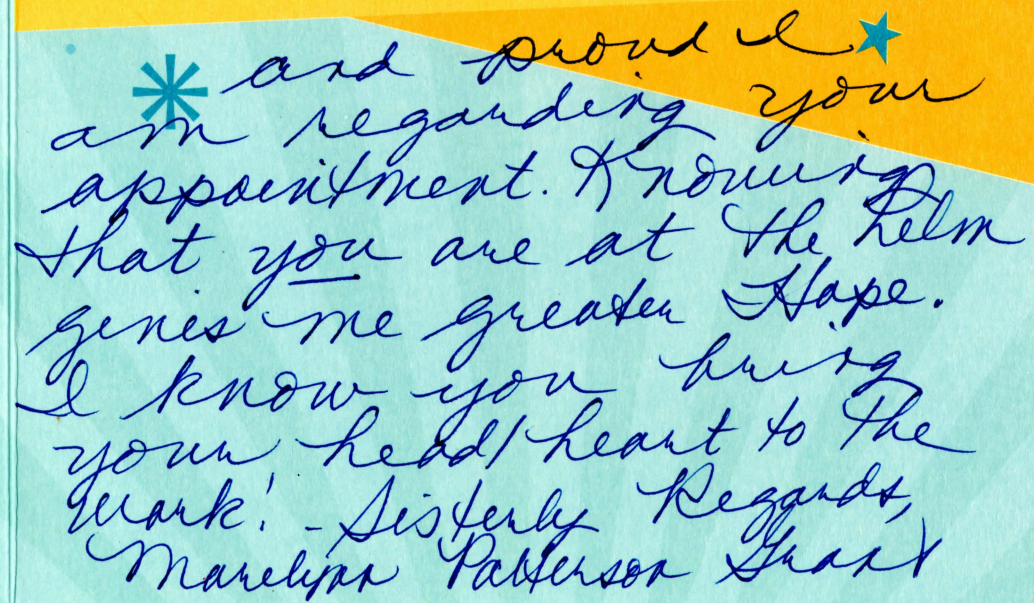 and proud I
am regarding your
appointment. Knowing
that you are at the helm
gives me greater Hope.
I know you bring
your head/heart to the
work! - Sisterly Regards,
Marelynn Patterson Grant